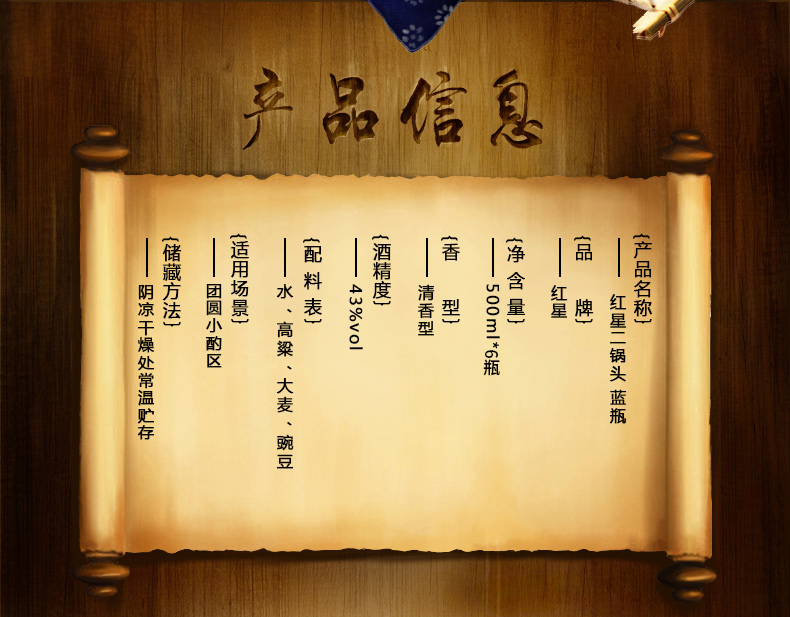 产品信息
{产品名称}
红星二锅头 蓝瓶
{品 牌}
红星
{净 含 量}
500ml*6瓶
{香 型}
清香型
{酒精度}
43%vol
{配 料 表}
水、高粱、大麦、豌豆
{适用场景}
团圆小酌区
{储藏方法}
阴凉干燥处常温贮存